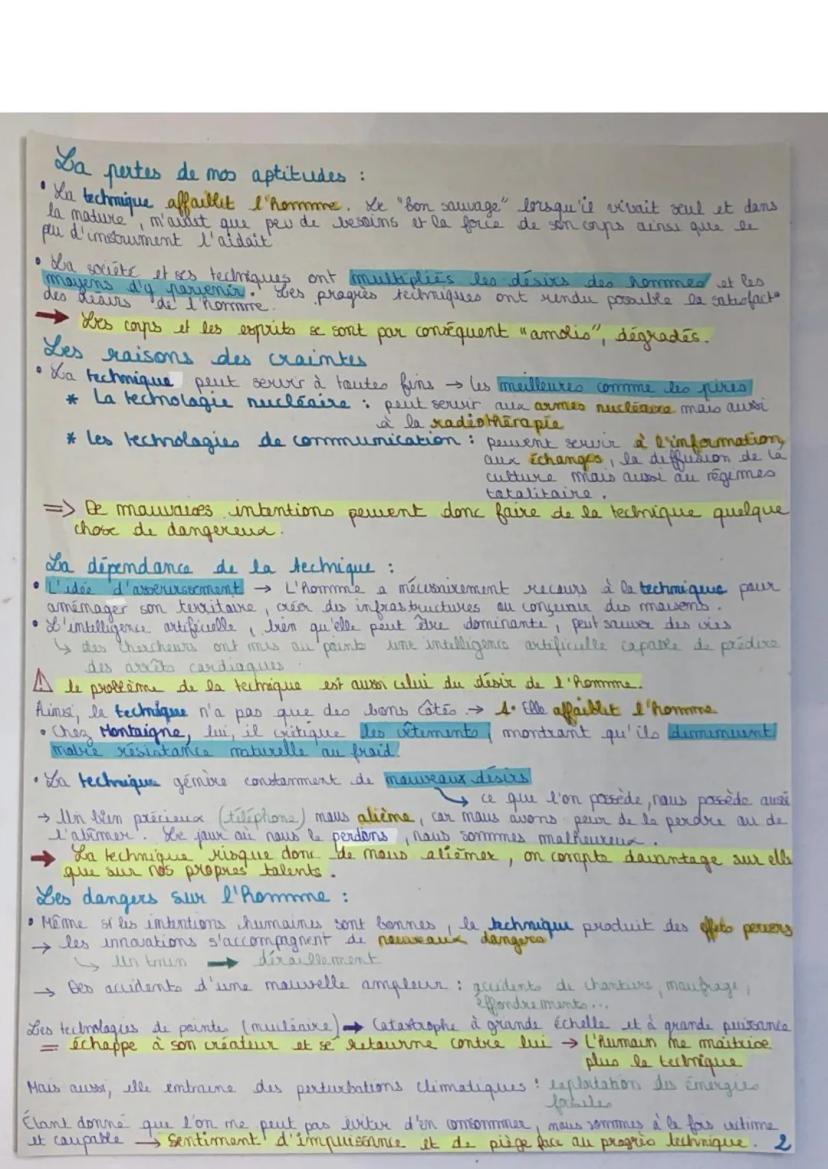 La pertes de nos aptitudes :
• La technique affaiblit l'homme. Le "bon sauvage" lorsqu'il vivait seul et dans
la nature, n'avait que peu de besoins et la force de son corps ainsi que le
peu d'instrument l'aidait
• La société et ses techniques ont multipliés les désirs des hommes et les
moyens d'y parvenir. Les progrès techniques ont rendu possible la satisfact°
des désirs de l'homme.
→ Les corps et les esprits se sont par conséquent "amolis", dégradés.
Les raisons des craintes
• La technique peut servir à toutes fins → les meilleures comme les pires
* La technologie nucléaire : peut servir aux armes nucléaire mais aussi
à la radiothérapie
* les technologies de communication : peuvent servir à l'information,
aux échanges, la diffusion de la
culture mais aussi au régimes
totalitaire.
=> De mauvaises intentions peuvent donc faire de la technique quelque
chose de dangereux.
La dépendance de la technique :
• L'idée d'asservissement → L'homme a nécessairement recours à la technique pour
aménager son territoire, créer des infrastructures ou conçevoir des maisons.
• L'intelligence artificielle, bien qu'elle peut être dominante, peut sauver des vies
↳ des chercheurs ont mis au points une intelligence artificielle capable de prédire
des arrêts cardiaques.
⚠ le problème de la technique est aussi celui du désir de l'homme.
Ainsi, la technique n'a pas que des bons côtés → 1. Elle affaiblit l'homme
• Chez Montaigne, lui, il critique les vêtements, montrant qu'ils diminuent
notre résistance naturelle au froid.
• La technique génère constamment de nouveaux désirs
↳ ce que l'on possède, nous possède aussi
→ Un bien précieux (téléphone) nous aliène, car nous avons peur de le perdre ou de
l'abîmer. Le jour où nous le perdons, nous sommes malheureux.
→ La technique risque donc de nous aliéner, on compte davantage sur elle
que sur nos propres talents.
Les dangers sur l'homme :
• Même si les intentions humaines sont bonnes, la technique produit des effets pervers
→ les innovations s'accompagnent de nouveaux dangers
↳ Un train → déraillement
→ Des accidents d'une nouvelle ampleur : accidents de chantiers, naufrage,
effondrements...
Les technologies de pointe (nucléaire) → Catastrophe à grande échelle et à grande puissance
= échappe à son créateur et se retourne contre lui → L'humain ne maitrise
plus la technique
Mais aussi, elle entraine des perturbations climatiques : exploitation des énergies
fossiles
Étant donné que l'on ne peut pas éviter d'en consommer, nous sommes à la fois victime
et coupable → Sentiment d'impuissance et de piège face au progrès technique. 2